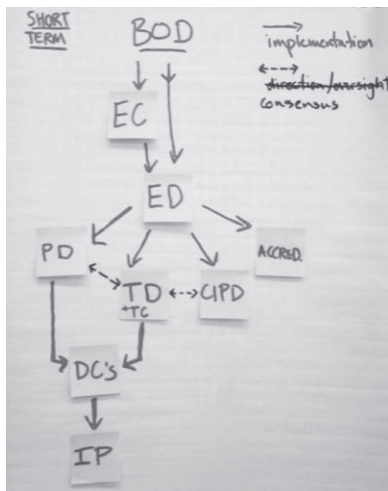 SHORT
TERM
BOD
implementation
direction/oversight
consensus
EC
ED
PD
ACCRED.
TD
+TC
CIPD
DC's
IP